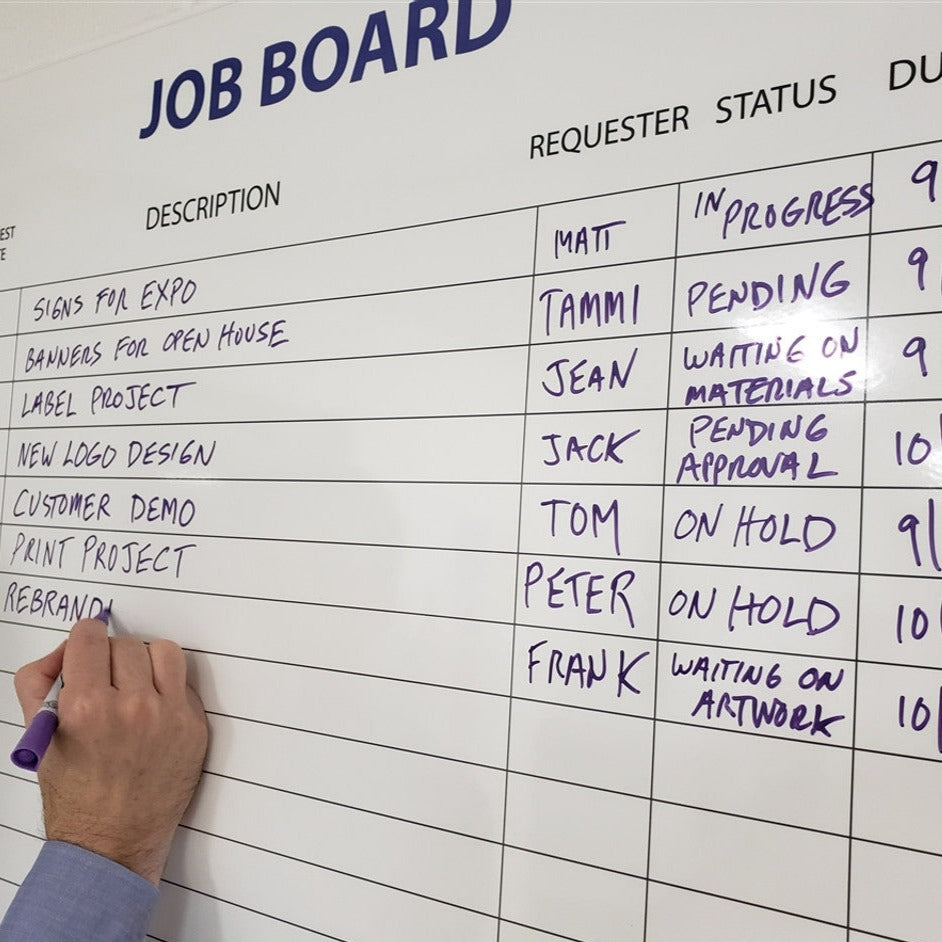 JOB BOARD
DESCRIPTION REQUESTER STATUS
SIGNS FOR EXPO MATT IN PROGRESS 9
BANNERS FOR OPEN HOUSE TAMMI PENDING 9/
LABEL PROJECT JEAN WAITING ON MATERIALS 9
NEW LOGO DESIGN JACK PENDING APPROVAL 10/
CUSTOMER DEMO TOM ON HOLD 9/
PRINT PROJECT PETER ON HOLD 10/
REBRANDI FRANK WAITING ON ARTWORK 10/